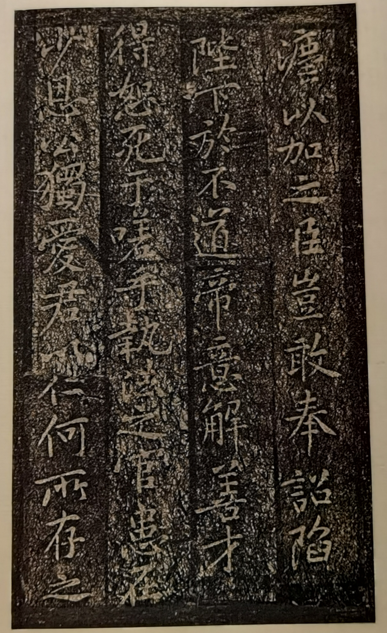 濃以加之臣豈敢奉詔陷
陛下於不道帝意解善才
得恕死于嗟乎執法之官患在
少恩公獨愛君以仁何所存之